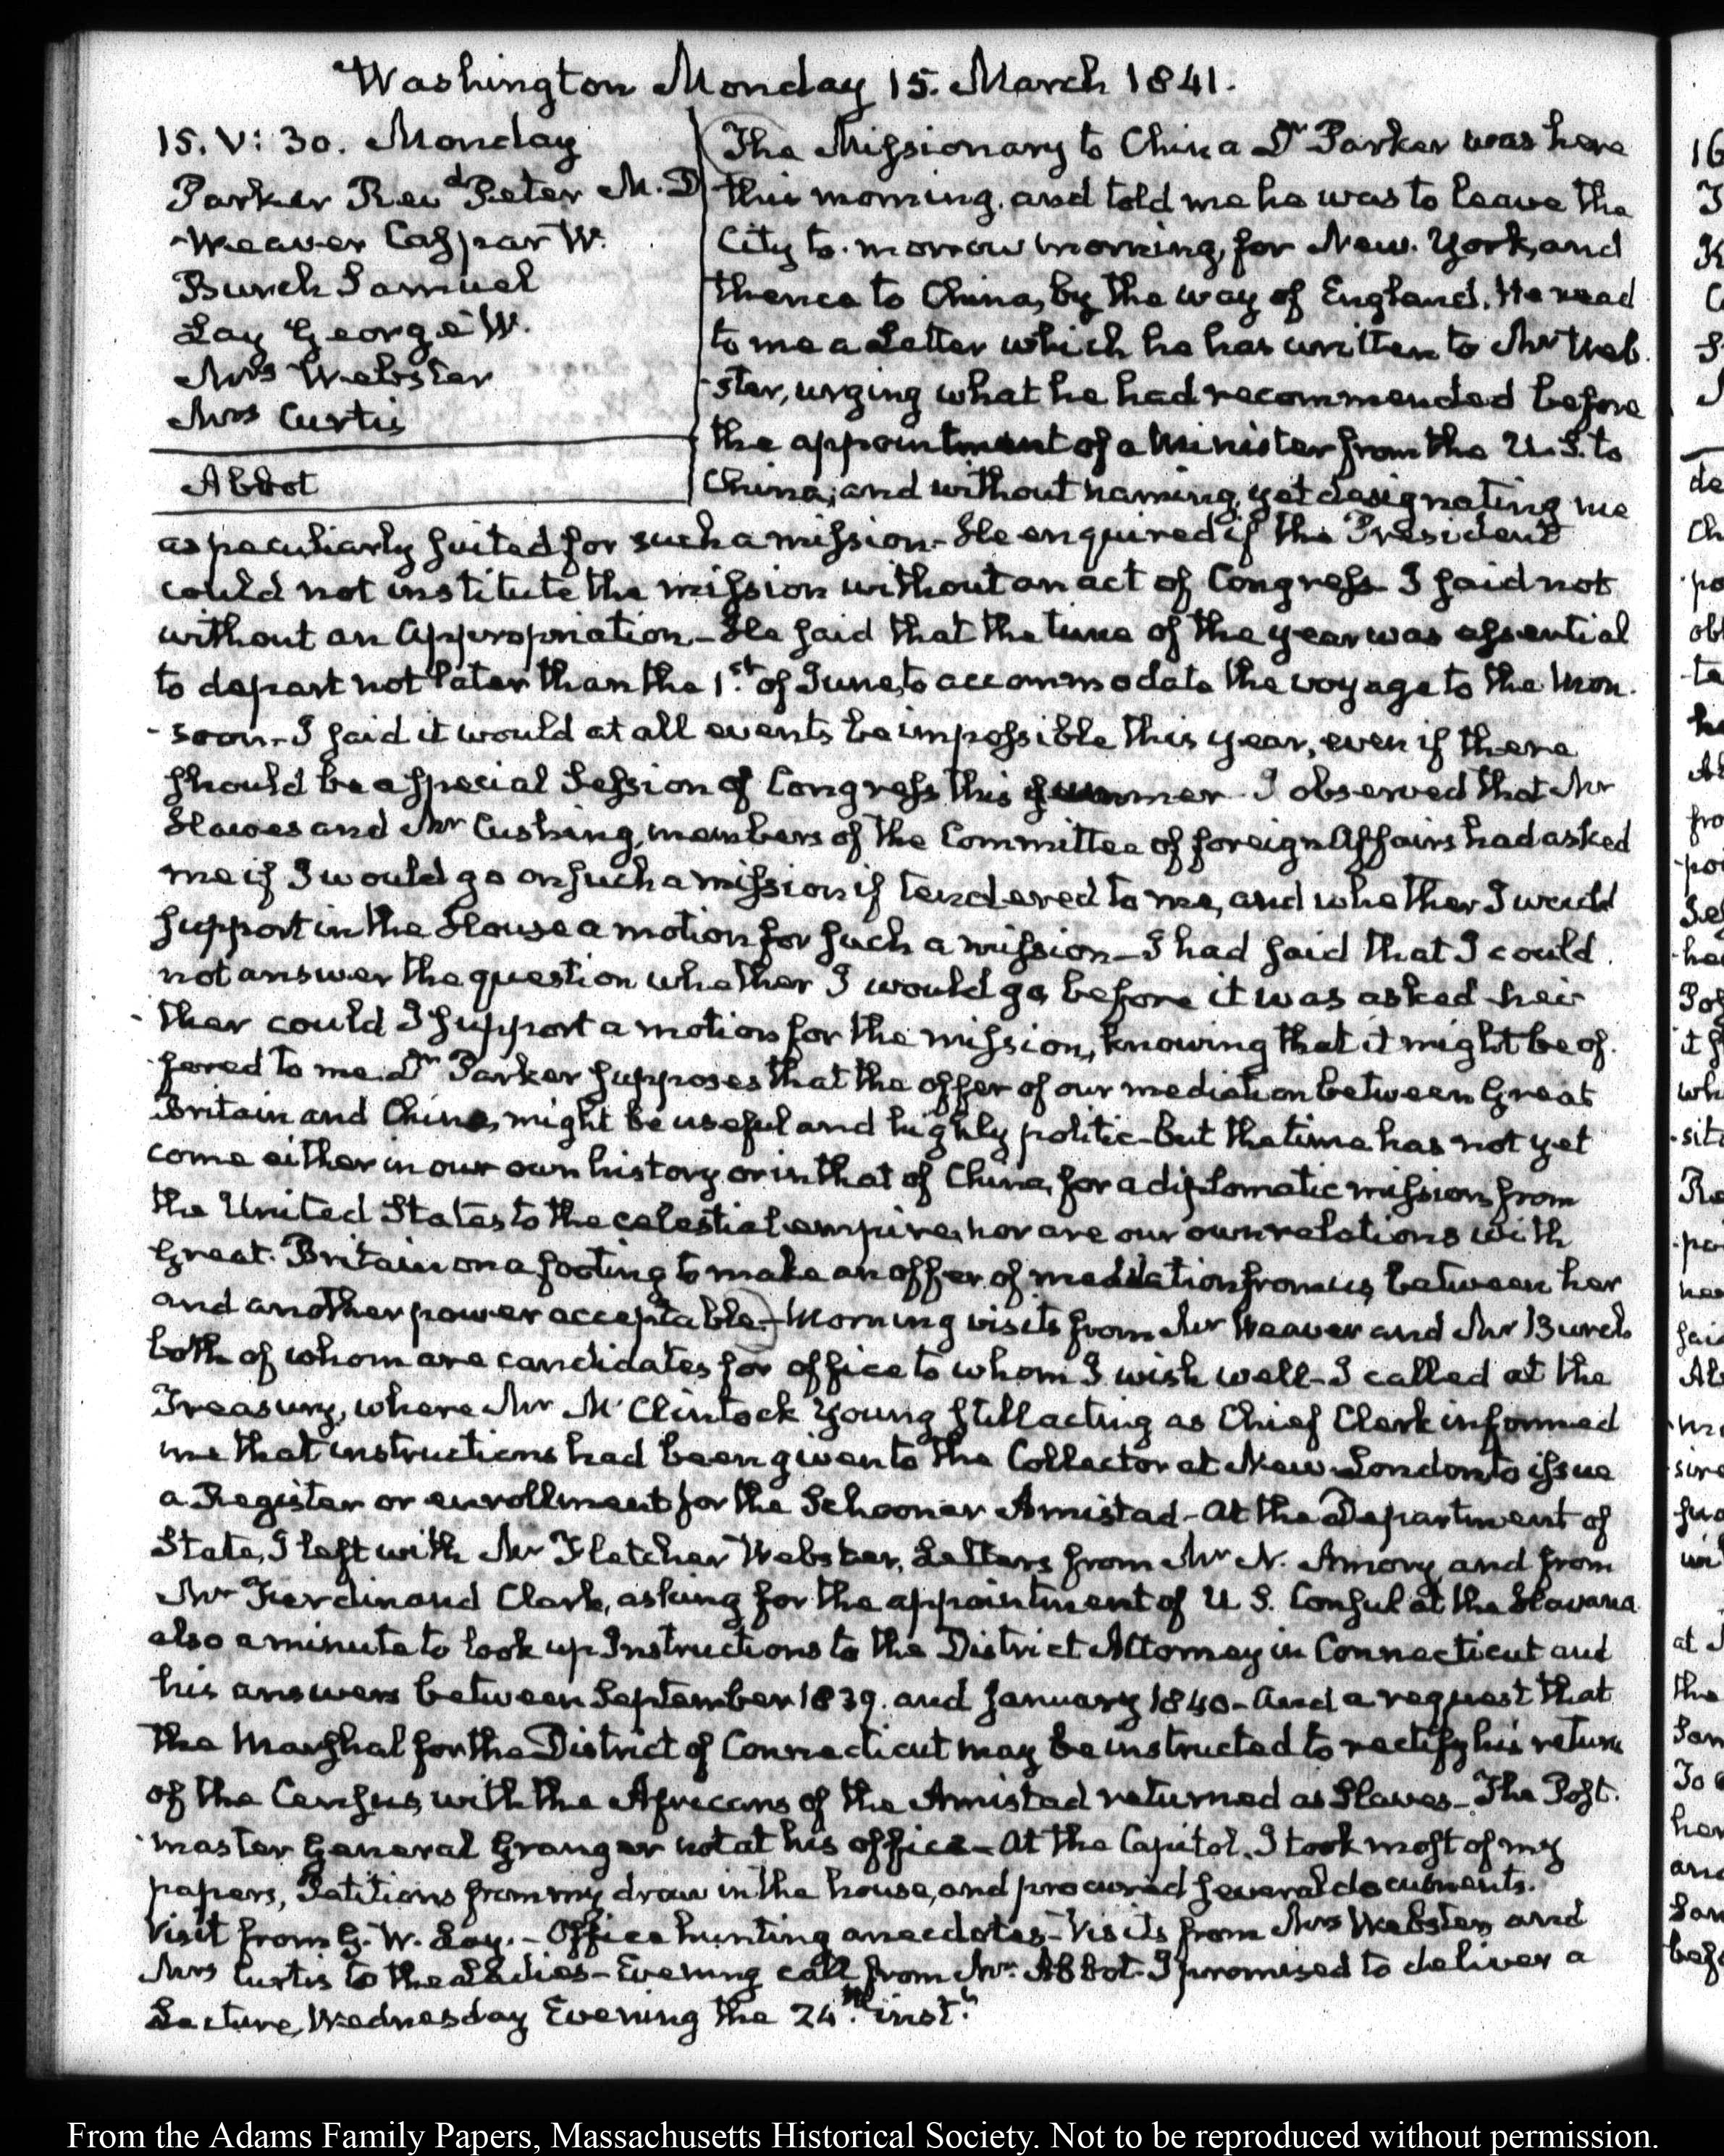 Washington Monday 15. March 1841.
15. V: 30. Monday
Parker Revd Peter M.D
Weaver Casspar W.
Burch Samuel
Lay George W.
Mrs Webster
Mrs Curtis
Abbot
The Missionary to China Dr Parker was here
this morning, and told me he was to leave the
City to-morrow morning, for New-York, and
thence to China, by the way of England. He read
to me a Letter which he has written to Mr Web-
-ster, urging what he had recommended before
the appointment of a Minister from the U.S. to
China; and without naming, yet designating me
as peculiarly suited for such a mission- He enquired if the President
could not institute the mission without an act of Congress- I said not
without an appropriation.- He said that the time of the year was essential
to depart not later than the 1st of June, to accommodate the voyage to the Mon-
-soon.- I said it would at all events be impossible this year, even if there
should be a special Session of Congress this summer- I observed that Mr
Hawes and Mr Cushing, members of the Committee of foreign Affairs had asked
me if I would go on such a mission if tendered to me, and whether I would
support in the House a motion for such a mission- I had said that I could
not answer the question whether I would go, before it was asked nei-
-ther could I support a motion for the mission, knowing that it might be of-
-fered to me. Dr Parker supposes that the offer of our mediation between Great
Britain and China, might be useful and highly politic- But the time has not yet
come either in our own history or in that of China, for a diplomatic mission from
the United States to the celestial empire, nor are our own relations with
Great-Britain on a footing to make an offer of mediation from us, between her
and another power acceptable.)- Morning visits from Mr Weaver and Mr Burch
both of whom are candidates for office to whom I wish well- I called at the
Treasury, where Mr McClintock Young still acting as Chief Clerk informed
me that instructions had been given to the Collector at New-London to issue
a Register or enrollment for the Schooner Amistad- At the Department of
State, I left with Mr Fletcher Webster, Letters from Mr N. Amory, and from
Mr Ferdinand Clark, asking for the appointment of U S. Consul at the Havana
also a minute to look up Instructions to the District Attorney in Connecticut and
his answers between September 1839. and January 1840- And a request that
the Marshal for the District of Connecticut may be instructed to rectify his return
of the Census, with the Africans of the Amistad returned as Slaves- The Post-
-master General Granger not at his office- At the Capitol, I took most of my
papers, Petitions from my draw in the house, and procured several documents.
Visit from G. W. Lay.- Office hunting anecdotes- Visits from Mrs Webster, and
Mrs Curtis to the Ladies- Evening call from Mr. Abbot. I promised to deliver a
Lecture, Wednesday Evening the 24th inst.
From the Adams Family Papers, Massachusetts Historical Society. Not to be reproduced without permission.